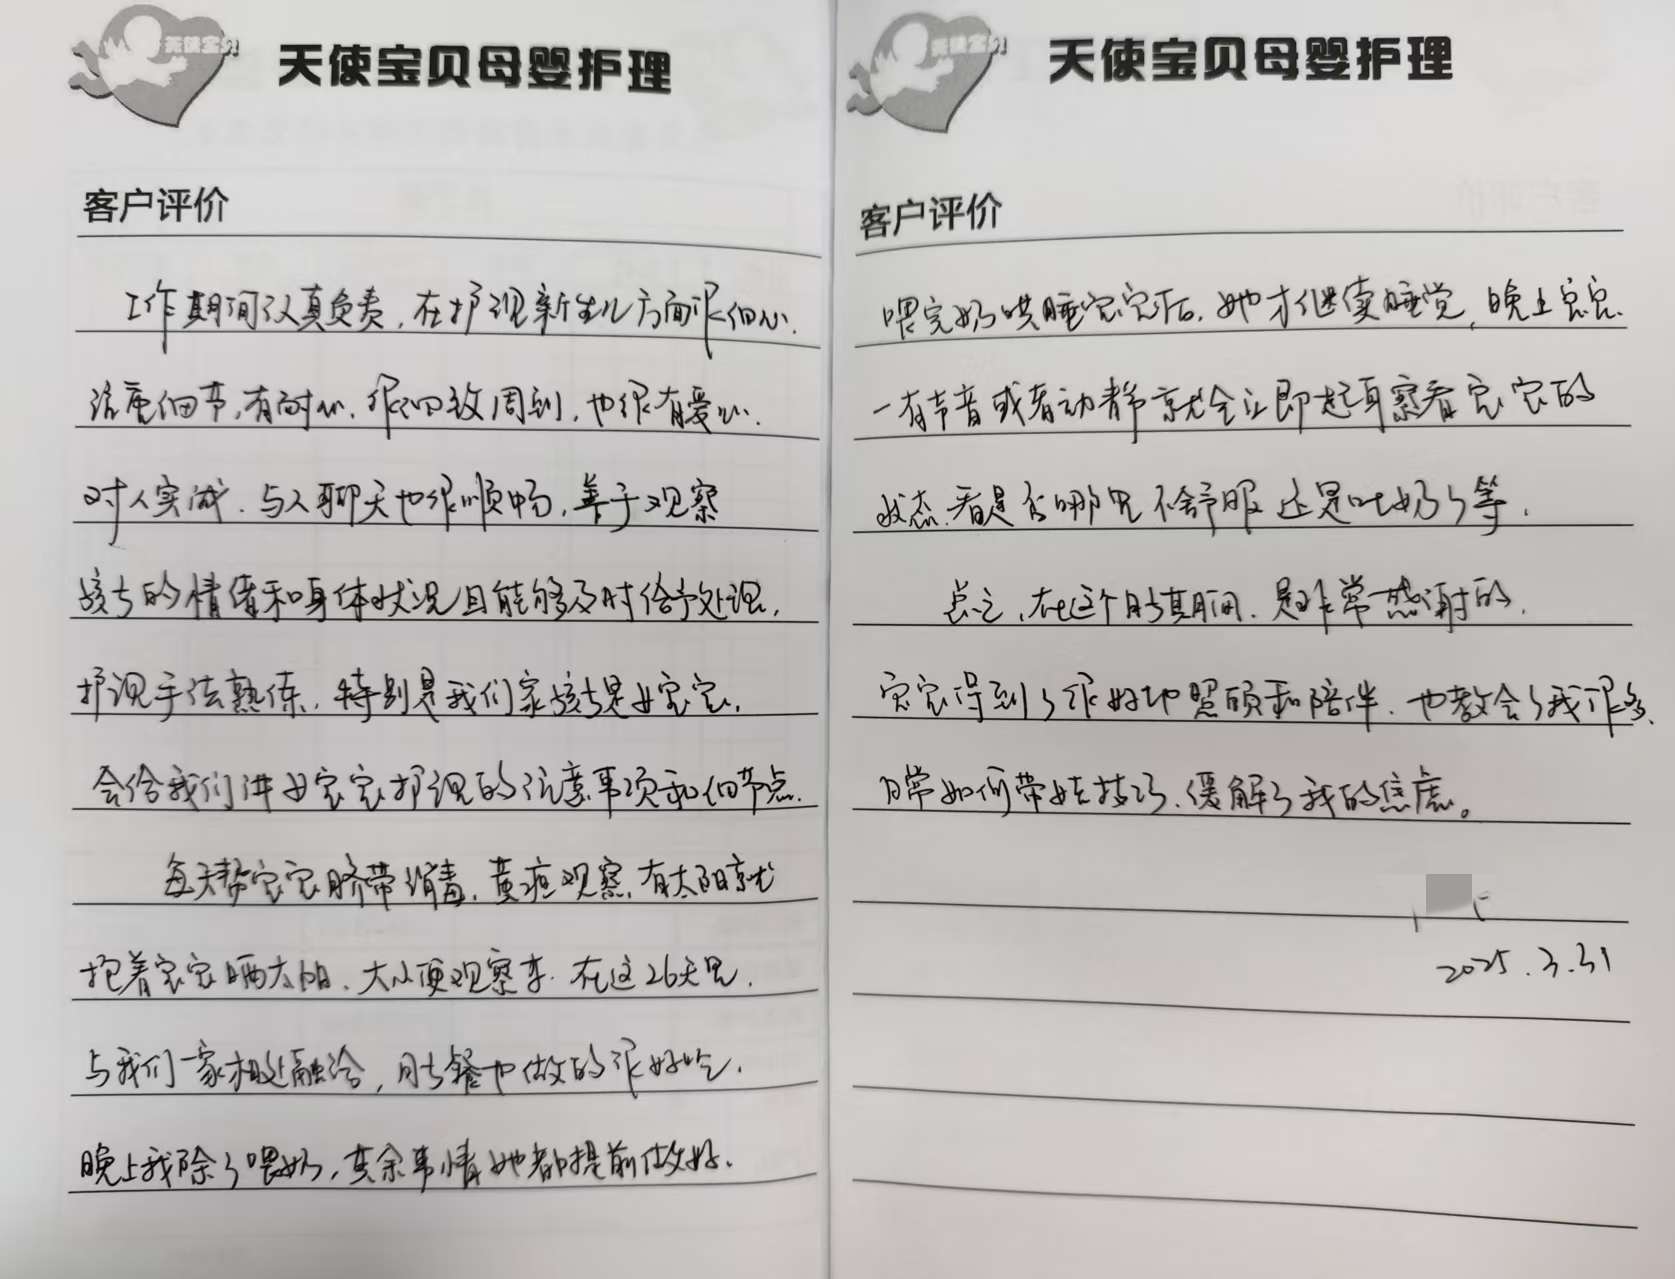 天使宝贝
天使宝贝母婴护理
客户评价
工作期间认真负责，在护理新生儿方面很细心，
注重细节，有耐心，很细致周到，也很有爱心，
对人实诚，与人聊天也很顺畅，善于观察
孩子的情绪和身体状况且能够及时给予处理，
护理手法熟练，特别是我们家孩子是女宝宝，
会给我们讲女宝宝护理的注意事项和细节点，
每天帮宝宝脐带消毒，黄疸观察，有太阳就
抱着宝宝晒太阳、大小便观察等，在这26天里，
与我们一家相处融洽，月子餐也做的很好吃，
晚上我除了喂奶，其余事情她都提前做好，
天使宝贝
天使宝贝母婴护理
客户评价
喂完奶哄睡宝宝后，她才继续睡觉，晚上宝宝
一有声音或者动静就会立即起身察看宝宝的
状态，看是否哪里不舒服还是吐奶了等，
总之，在这个月子期间，是非常感谢的，
宝宝得到了很好地照顾和陪伴，也教会了我很多
日常如何带娃技巧、缓解了我的焦虑。
2025.3.31